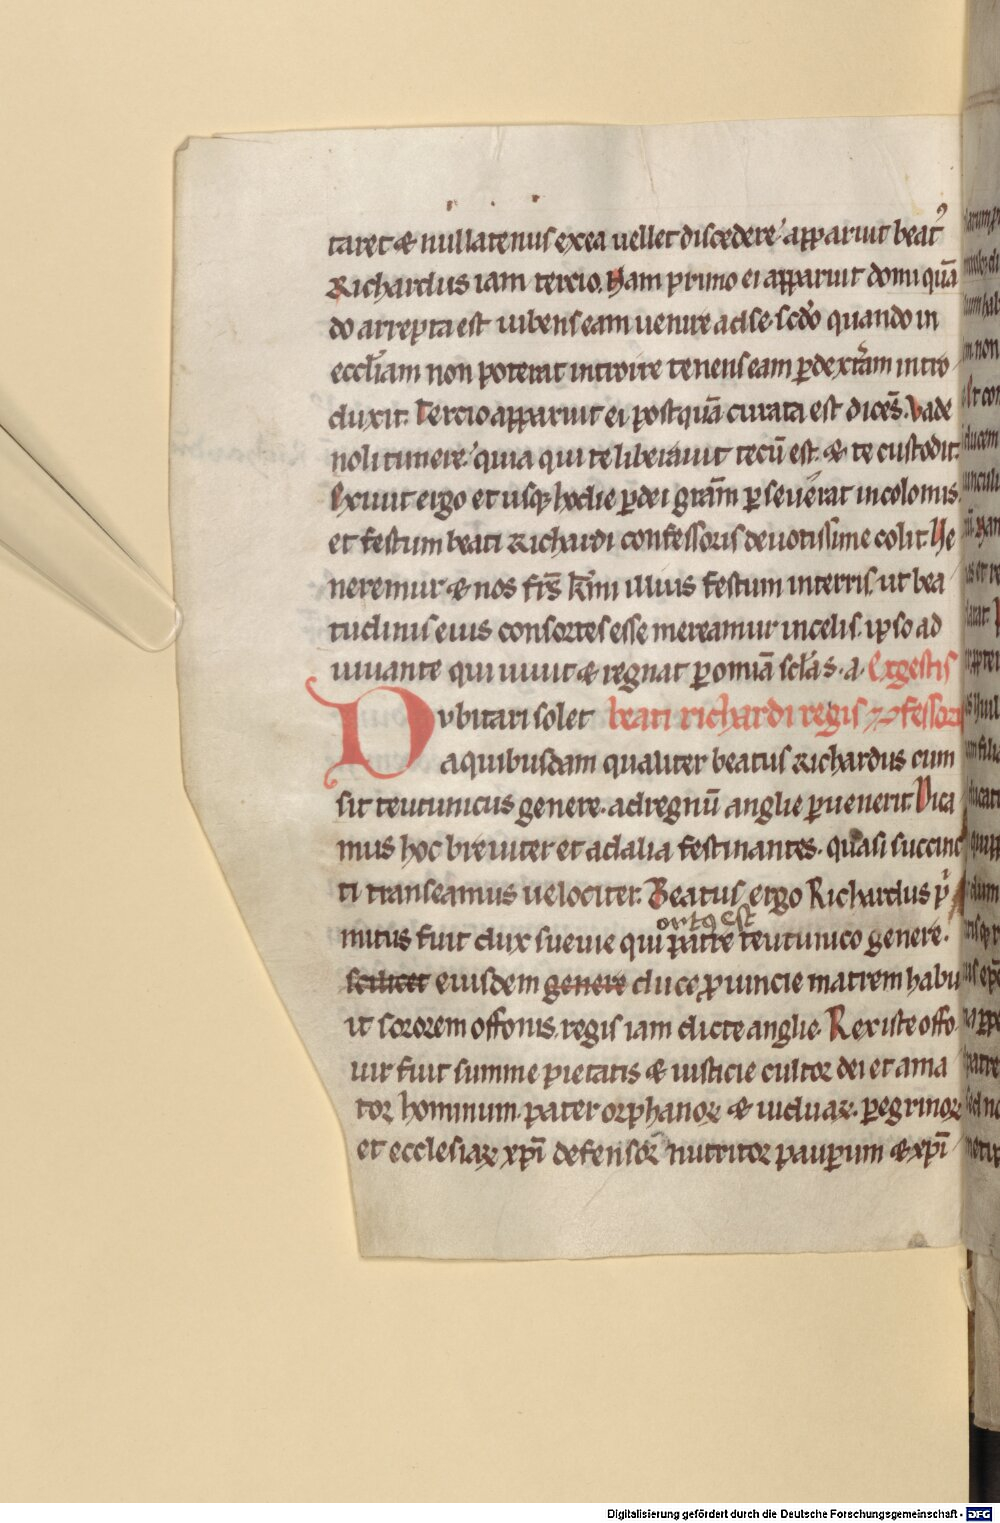 taret & nullatenus ex ea uellet discedere apparuit beatꝰ
Richardus iam tercio. Nam primo ei apparuit domi quā
do arrepta est iubens eam uenire ad se. scd̓o quando in
eccl̓iam non poterat introire tenens eam ꝑ dext̓am intro
duxit. Tercio apparuit ei postquā curata est dicēs. Vade
noli timere quia qui te liberauit tecū est. & te custodit.
Exiuit ergo et usqꝫ hodie ꝑ dei grām ꝑseuerat incolomis.
et festum beati Richardi confessoris deuotissime colit. Ve
neremur & nos frs̄ kr̄mi illius festum in terris. ut bea
tudinis eius consortes esse mereamur in celis. ipso ad
iuuante qui uiuit & regnat ꝑ omīa scl̓a s. a. Ex gestis
Dvbitari solet beati richardi regis ⁊ ꝯfessoris
a quibusdam qualiter beatus Richardus cum
sit teutunicus genere. ad regnū anglie ꝑuenerit. Dica
mus hoc breuiter et ad alia festinantes. quasi succinc
ti transeamus uelociter. Beatus ergo Richardus pͥ
ortꝰ est
mitus fuit dux sueuie qui patre teutunico genere.
scilicet eiusdem genere duce ꝓuincie matrem habu
it sororem offonis. regis iam dicte anglie. Rex iste offo
uir fuit summe pietatis & iusticie cultor dei et ama
tor hominum. pater orphanoꝝ & uiduaꝝ. ꝑegrinoꝝ
et ecclesiaꝝ xp̄i defensor nutritor pauꝑum & xp̄i
Digitalisierung gefördert durch die Deutsche Forschungsgemeinschaft - DFG